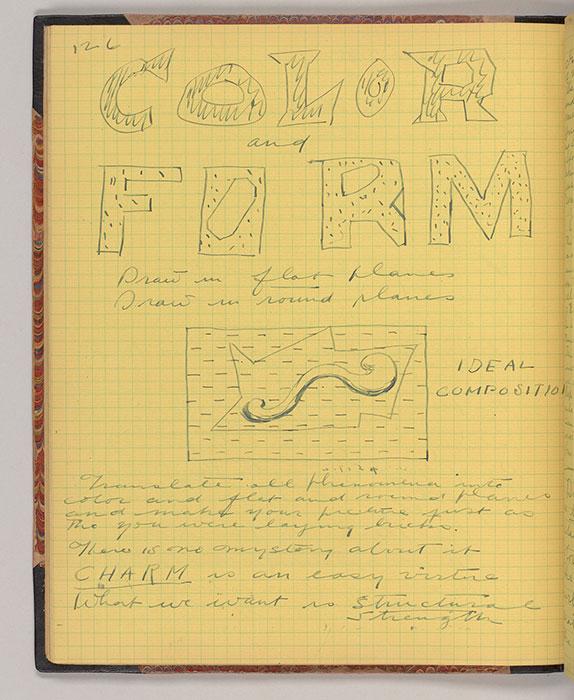 126
COLOR
and
FORM
Draw in flat planes
Draw in round planes
IDEAL
COMPOSITION
Translate all phenomena into
color and flat and round planes
and make your picture just as
tho you were laying bricks.
There is no mystery about it
CHARM is an easy virtue
What we want is structural
strength